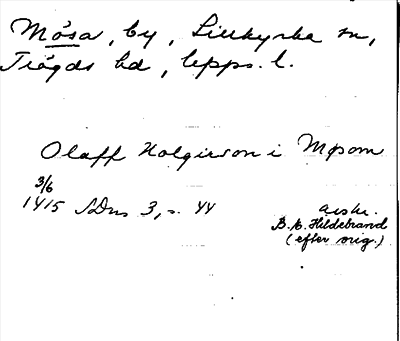 Mósa, by, Lillkyrka sn,
Trögds hd, Upps. l.
Olaff Holgierson i Mosom
3/6
1415 SDns 3, s. 44
avskr.
B. E. Hildebrand
(efter orig.)